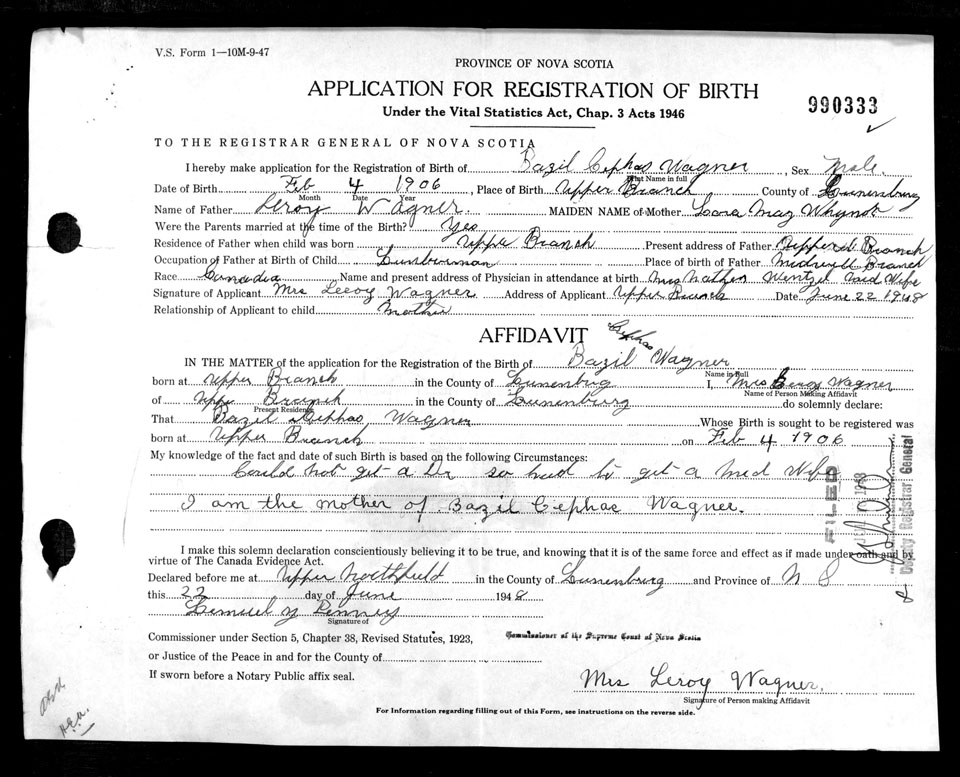 V.S. Form 1—10M-9-47
PROVINCE OF NOVA SCOTIA
APPLICATION FOR REGISTRATION OF BIRTH
Under the Vital Statistics Act, Chap. 3 Acts 1946
990333
TO THE REGISTRAR GENERAL OF NOVA SCOTIA
I hereby make application for the Registration of Birth of Bazil Cephas Wagner, Sex Male.
Name in full
Date of Birth Feb 4 1906, Place of Birth Upper Branch County of Lunenburg
Month Date Year
Name of Father Leroy Wagner MAIDEN NAME of Mother Lora May Whynot
Were the Parents married at the time of the Birth? Yes
Residence of Father when child was born Upper Branch Present address of Father Upper Branch
Occupation of Father at Birth of Child Lumberman Place of birth of Father Branch
Race Canadia Name and present address of Physician in attendance at birth Mrs Nathen Wentzel Mid Wife
Signature of Applicant Mrs Leroy Wagner Address of Applicant Upper Branch Date June 22 1948
Relationship of Applicant to child Mother
AFFIDAVIT
Cephas
IN THE MATTER of the application for the Registration of the Birth of Bazil Wagner
Name in Full
born at Upper Branch in the County of Lunenbrug I, Mrs Wagner
Name of Person Making Affidavit
of Upper Branch in the County of Lunenburg do solemnly declare:
Present Residence
That Bazil Cephas Wagner Whose Birth is sought to be registered was
born at Upper Branch on Feb 4 1906
My knowledge of the fact and date of such Birth is based on the following Circumstances:
Could not get a Dr so had to get a Mid Wife
I am the mother of Bazil Cephas Wagner.
FILED
1948
Deputy Registrar General
I make this solemn declaration conscientiously believing it to be true, and knowing that it is of the same force and effect as if made under oath and by
virtue of The Canada Evidence Act.
Declared before me at Upper Northfield in the County of Lunenburg and Province of N S
this 22 day of June 1948
Lemuel Penney
Signature of
Commissioner under Section 5, Chapter 38, Revised Statutes, 1923,
Commissioner of the Supreme Court of Nova Scotia
or Justice of the Peace in and for the County of
If sworn before a Notary Public affix seal.
Mrs Leroy Wagner.
Signature of Person making Affidavit
For Information regarding filling out of this Form, see instructions on the reverse side.